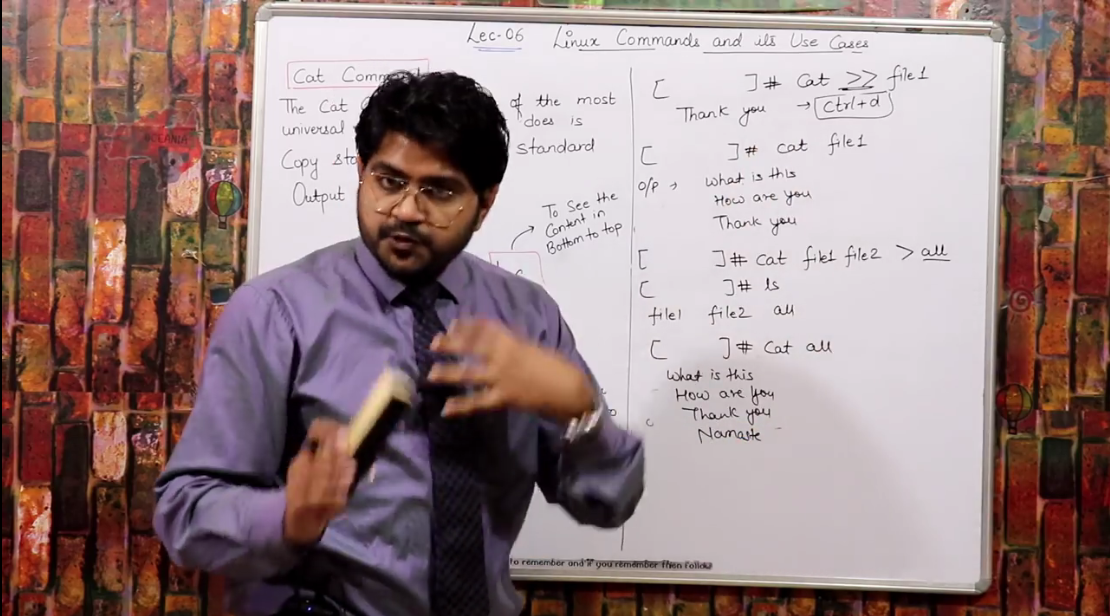 Lec-06 Linux Commands and its Use Cases
Cat
The Cat of the most
universal does is
Copy standard
Output
To see the
Content in
Bottom to top
[ ]# cat >> file1
Thank you → ctrl+d
[ ]# cat file1
O/P → What is this
How are you
Thank you
[ ]# cat file1 file2 > all
[ ]# ls
file1 file2 all
[ ]# cat all
What is this
How are you
Thank you
Namaste
to remember and if you remember then follow
OCEANIA